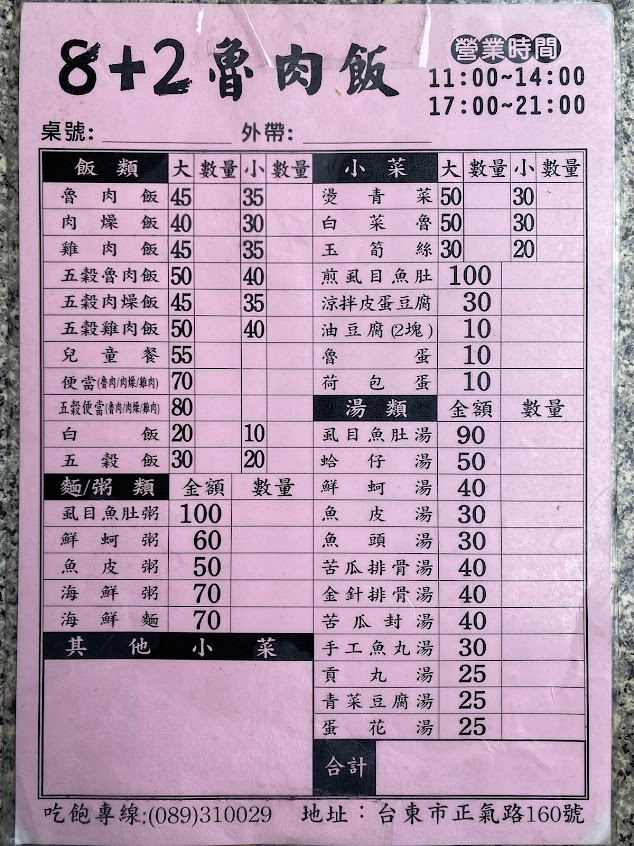 8+2魯肉飯
營業時間
11:00~14:00
17:00~21:00
桌號: 外帶:
飯類 大 數量 小 數量
魯肉飯 45 35
肉燥飯 40 30
雞肉飯 45 35
五穀魯肉飯 50 40
五穀肉燥飯 45 35
五穀雞肉飯 50 40
兒童餐 55
便當(魯肉/肉燥/雞肉) 70
五穀便當(魯肉/肉燥/雞肉) 80
白飯 20 10
五穀飯 30 20
麵/粥類 金額 數量
虱目魚肚粥 100
鮮蚵粥 60
魚皮粥 50
海鮮粥 70
海鮮麵 70
其他小菜
小菜 大 數量 小 數量
燙青菜 50 30
白菜魯 50 30
玉筍絲 30 20
煎虱目魚肚 100
涼拌皮蛋豆腐 30
油豆腐(2塊) 10
魯蛋 10
荷包蛋 10
湯類 金額 數量
虱目魚肚湯 90
蛤仔湯 50
鮮蚵湯 40
魚皮湯 30
魚頭湯 30
苦瓜排骨湯 40
金針排骨湯 40
苦瓜封湯 40
手工魚丸湯 30
貢丸湯 25
青菜豆腐湯 25
蛋花湯 25
合計
吃飽專線:(089)310029 地址：台東市正氣路160號